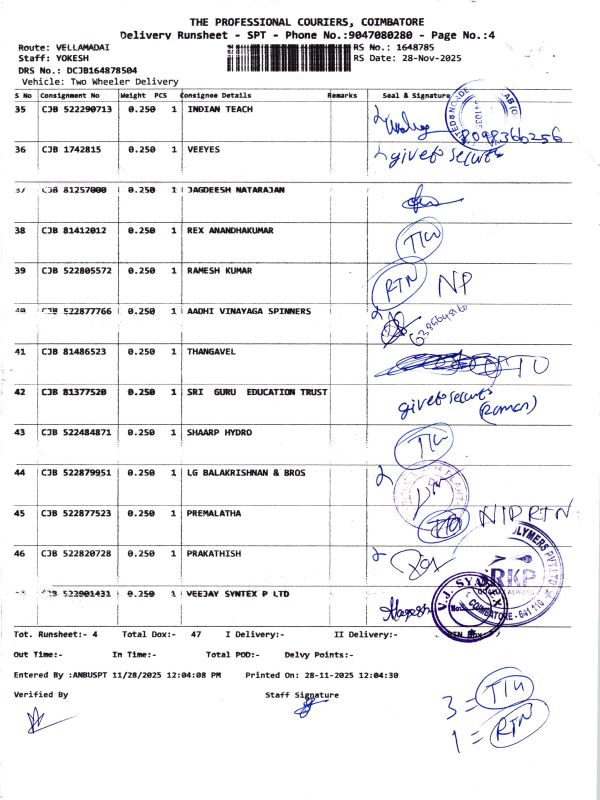 THE PROFESSIONAL COURIERS, COIMBATORE
Delivery Runsheet - SPT - Phone No.:9047080280 - Page No.:4
Route: VELLAMADAI RS No.: 1648785
Staff: YOKESH RS Date: 28-Nov-2025
DRS No.: DCJB164878504
Vehicle: Two Wheeler Delivery
S No Consignment No Weight PCS Consignee Details Remarks Seal & Signature
35 CJB 522290713 0.250 1 INDIAN TEACH
8098366256
36 CJB 1742815 0.250 1 VEEYES give to
37 CJB 81257000 0.250 1 JAGDEESH NATARAJAN
38 CJB 81412012 0.250 1 REX ANANDHAKUMAR
39 CJB 522805572 0.250 1 RAMESH KUMAR RTN NP
40 CJB 522877766 0.250 1 AADHI VINAYAGA SPINNERS
41 CJB 81486523 0.250 1 THANGAVEL
42 CJB 81377520 0.250 1 SRI GURU EDUCATION TRUST give to
43 CJB 522484871 0.250 1 SHAARP HYDRO
44 CJB 522879951 0.250 1 LG BALAKRISHNAN & BROS
45 CJB 522877523 0.250 1 PREMALATHA RTN
46 CJB 522820728 0.250 1 PRAKATHISH
RKP
CJB 522901431 0.250 1 VEEJAY SYNTEX P LTD
COIMBATORE - 641 110
Tot. Runsheet:- 4 Total Dox:- 47 I Delivery:- II Delivery:-
Out Time:- In Time:- Total POD:- Delvy Points:-
Entered By :ANBUSPT 11/28/2025 12:04:08 PM Printed On: 28-11-2025 12:04:30
Verified By Staff Signature
1 = RTN